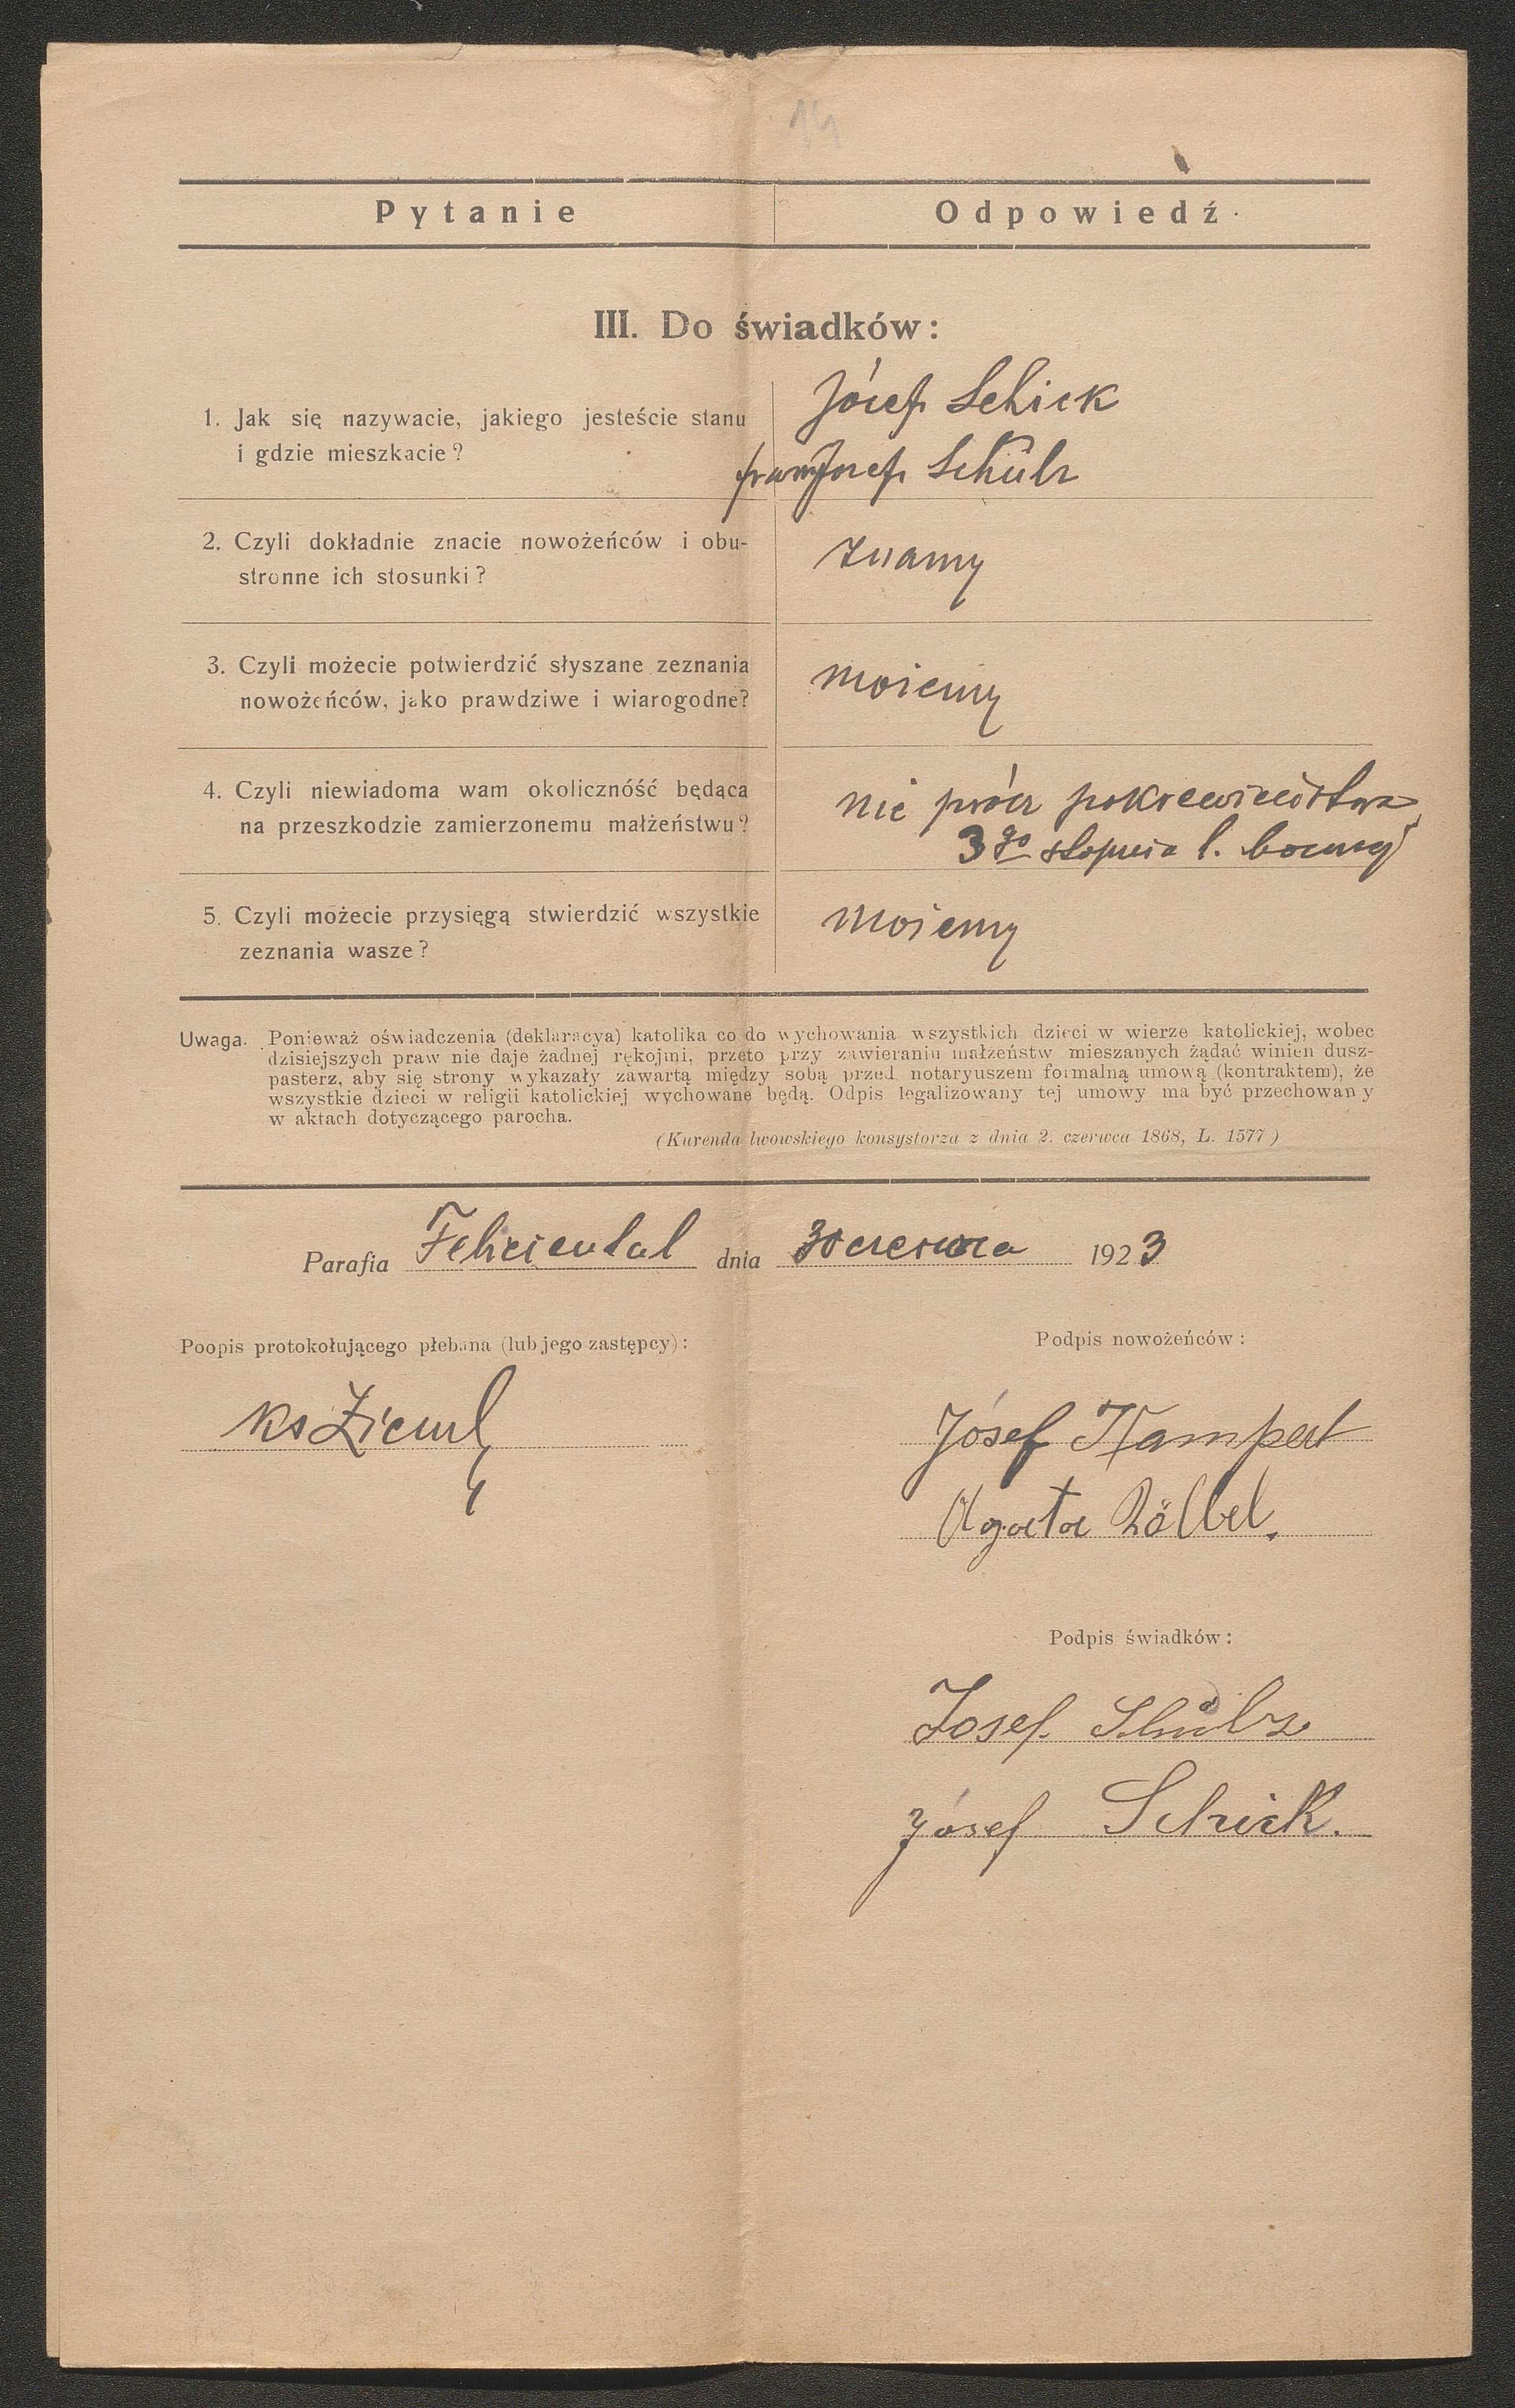 14
Pytanie
Odpowiedź.
III. Do świadków:
1. Jak się nazywacie, jakiego jesteście stanu
i gdzie mieszkacie?
Józef Schick
Josef Schülz
2. Czyli dokładnie znacie nowożeńców i obu-
stronne ich stosunki?
znamy
3. Czyli możecie potwierdzić słyszane zeznania
nowożeńców, jako prawdziwe i wiarogodne?
możemy
4. Czyli niewiadoma wam okolicznóść będąca
na przeszkodzie zamierzonemu małżeństwu?
nie prócz pokrewieństwa
3go stopnia l. bocznej
5. Czyli możecie przysięgą stwierdzić wszystkie
zeznania wasze?
możemy
Uwaga. Ponieważ oświadczenia (deklaracya) katolika co do wychowania wszystkich dzieci w wierze katolickiej, wobec
dzisiejszych praw nie daje żadnej rękojmi, przeto przy zawieraniu małżeństw mieszanych żądać winien dusz-
pasterz, aby się strony wykazały zawartą między sobą przed notaryuszem formalną umową (kontraktem), że
wszystkie dzieci w religii katolickiej wychowane będą. Odpis legalizowany tej umowy ma być przechowany
w aktach dotyczącego parocha.
(Kurenda lwowskiego konsystorza z dnia 2. czerwca 1868, L. 1577)
Parafia Feliziental dnia 30 czerwca 1923
Poopis protokołującego plebana (lub jego zastępcy):
Podpis nowożeńców:
Ks
Józef Kampert
Agata Rölbel.
Podpis świadków:
Josef Schülz
Józef Schick.